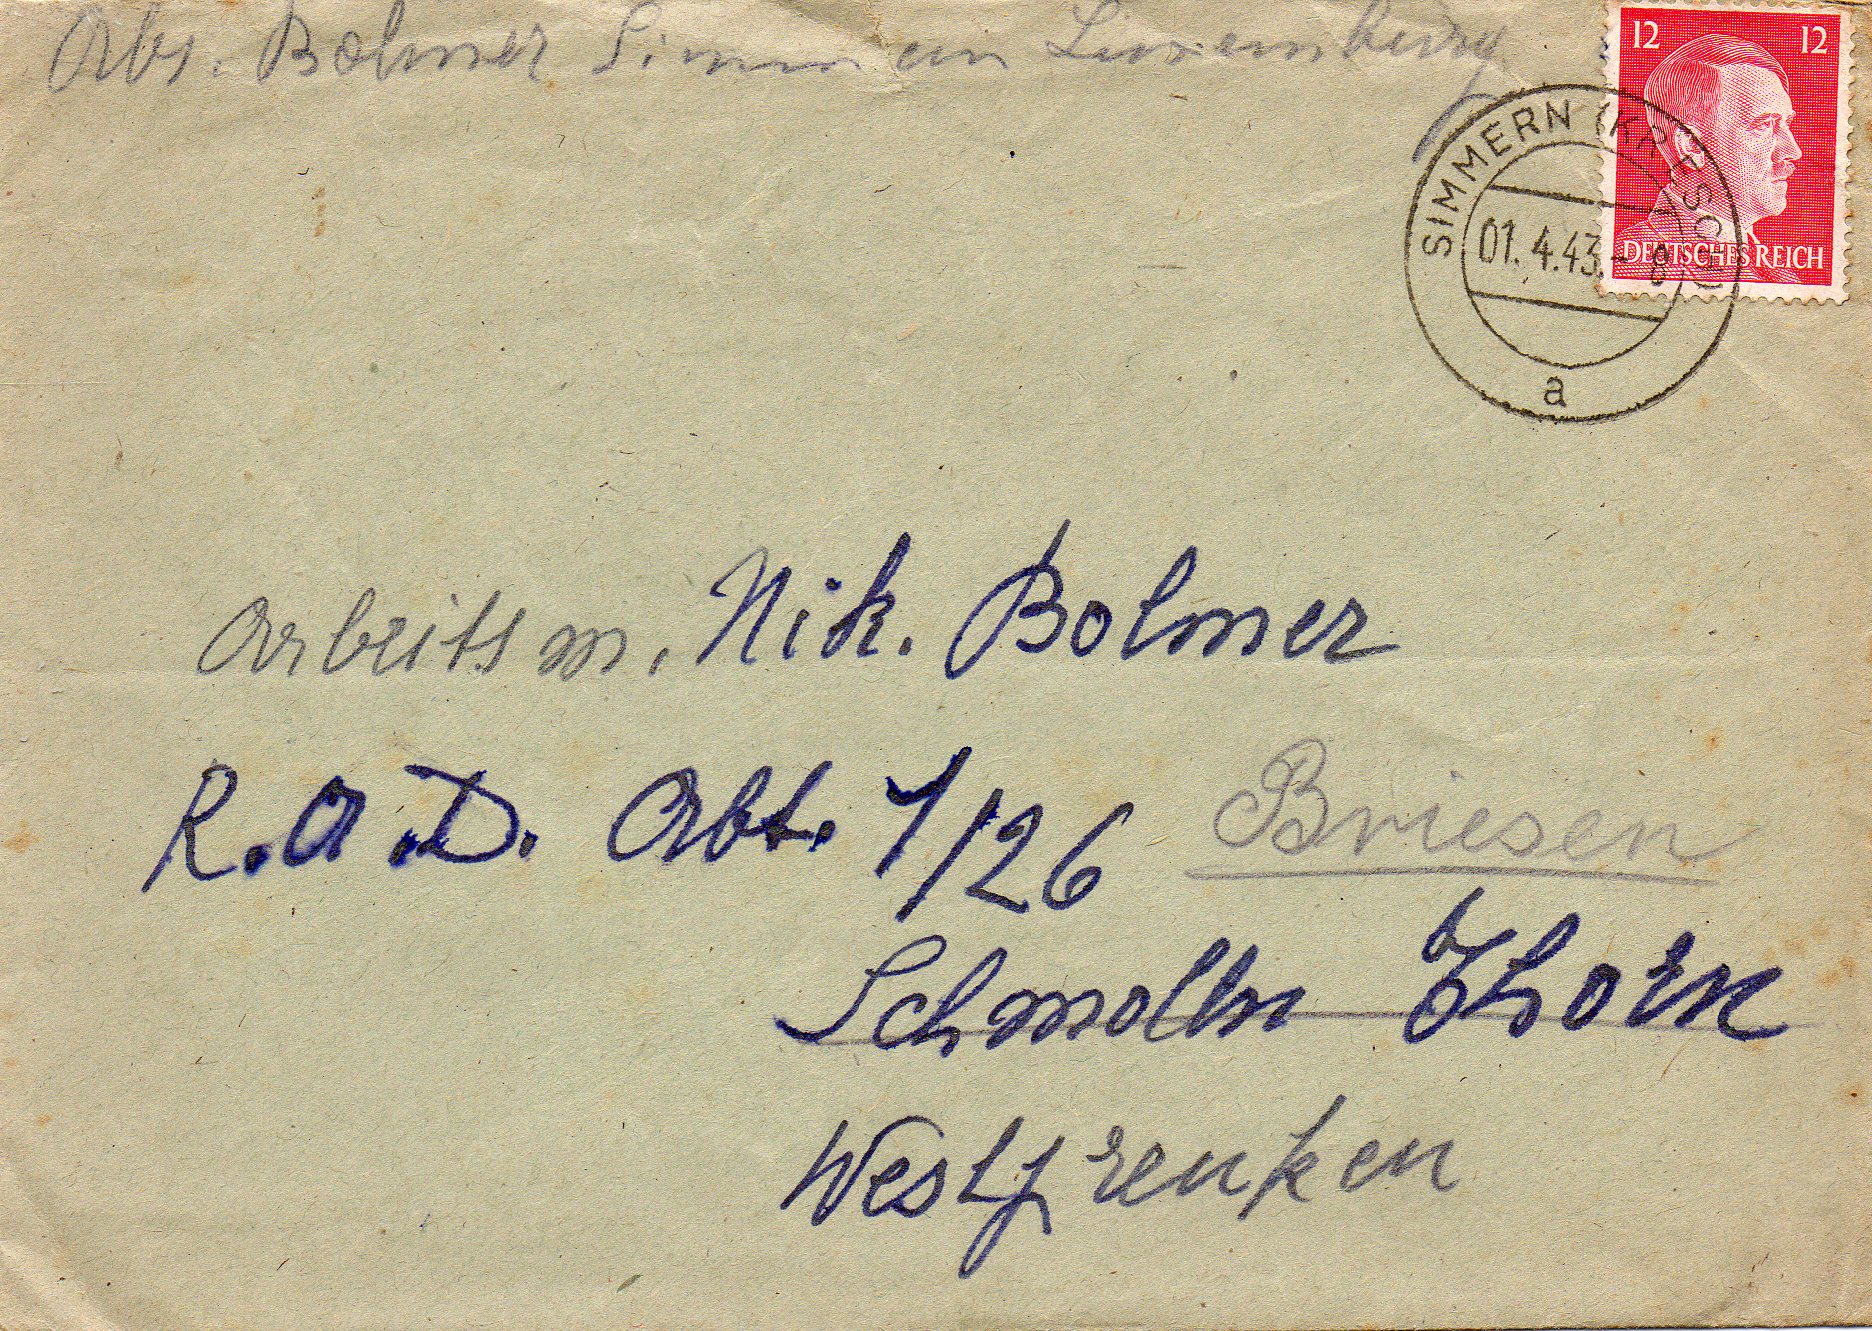 Abs. Bolmer Simmern Luxemburg
12 12
DEUTSCHES REICH
SIMMERN (KR ESCH)
01.4.43.-8
a
Arbeitsm. Nik. Bolmer
R.A.D. Abt. 7/26 Briesen
Schmolln Thorn
Westprenken